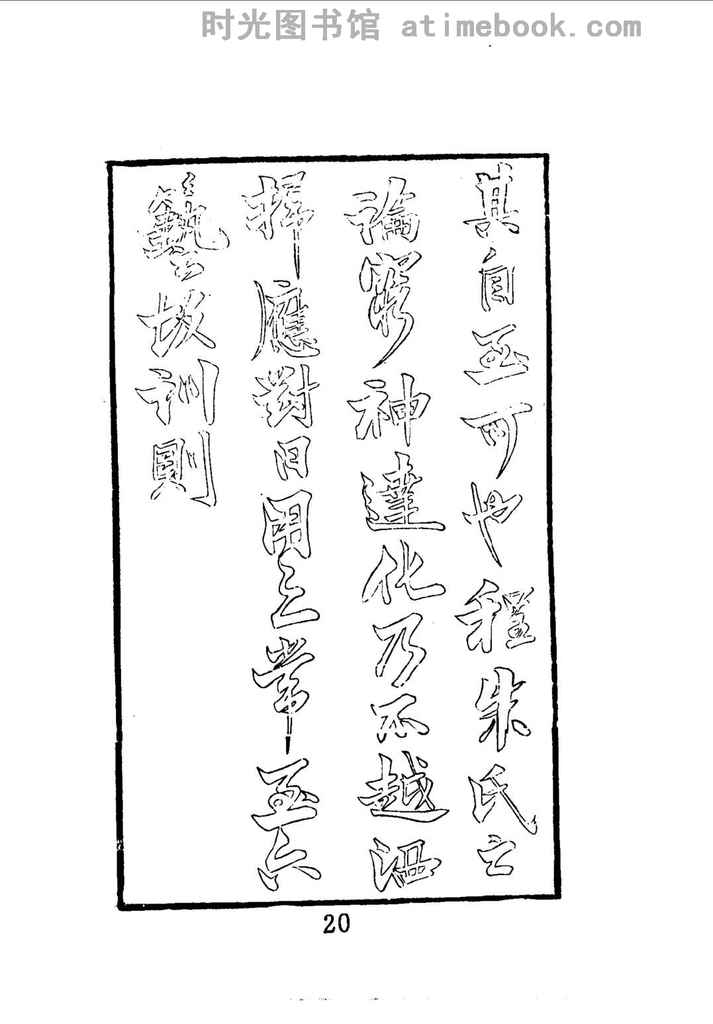 时光图书馆 atimebook.com
其自至可也程朱氏立
論窮神達化乃不越洒
掃應對日用之常至六
藝故訓則
20